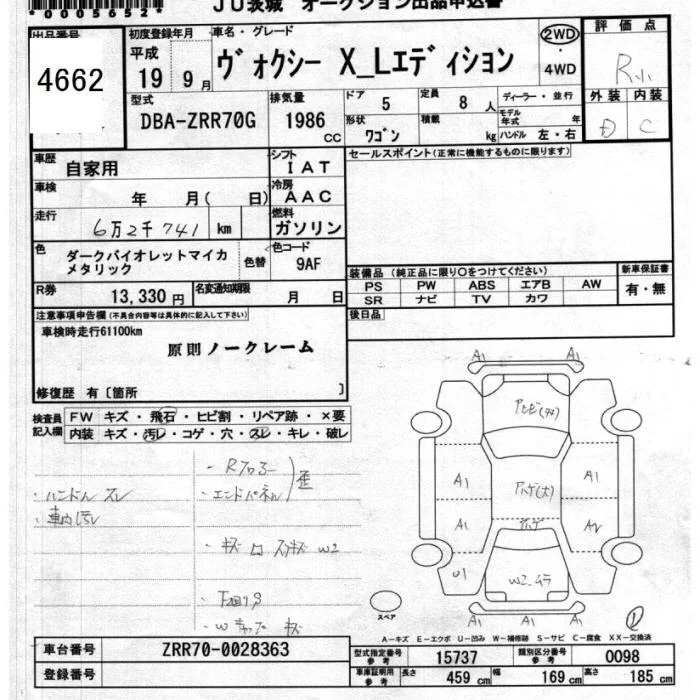 *0005652*
JU茨城 オークション出品申込書
出品番号
4662
初度登録年月
平成
19 9月
車名・グレード
ヴォクシー X_Lエディション
2WD
4WD
評価点
R小
外装 内装
D C
型式
DBA-ZRR70G
排気量
1986 CC
ドア 5
定員 8 人
形状 ワゴン
積載 kg
ディーラー・並行
モデル年式 年
ハンドル 左・右
車歴 自家用
シフト IAT
セールスポイント(正常に機能するものに限ります)
車検 年 月( 日)
冷房 AAC
走行 6万2千741 km
燃料 ガソリン
色 ダークバイオレットマイカメタリック
色替
色コード 9AF
装備品(純正品に限り〇をつけてください)
新車保証書
PS PW ABS エアB AW
有・無
SR ナビ TV カワ
R券 13,330円
名変通知期限 月 日
後日品
注意事項申告欄(不具合内容等は具体的に記入して下さい)
車検時走行61100km
原則ノークレーム
修復歴 有〔箇所 〕
検査員記入欄
FW キズ・飛石・ヒビ割・リペア跡・×要
内装 キズ・汚レ・コゲ・穴・スレ・キレ・破レ
・Rフロアー
・エンドパネル
歪
・ハンドル スレ
・車内汚レ
・キズ
W2
・W
キズ
A1 A1
A1
A1
A1
A1
A2
U1
W2
A1 A1
スペア
1
A-キズ E-エクボ U-凹み W-補修跡 S-サビ C-腐食 XX-交換済
車台番号 ZRR70-0028363
型式指定番号 参考 15737
類別区分番号 参考 0098
登録番号
車庫証明用 参考 長さ 459 cm 幅 169 cm 高さ 185 cm